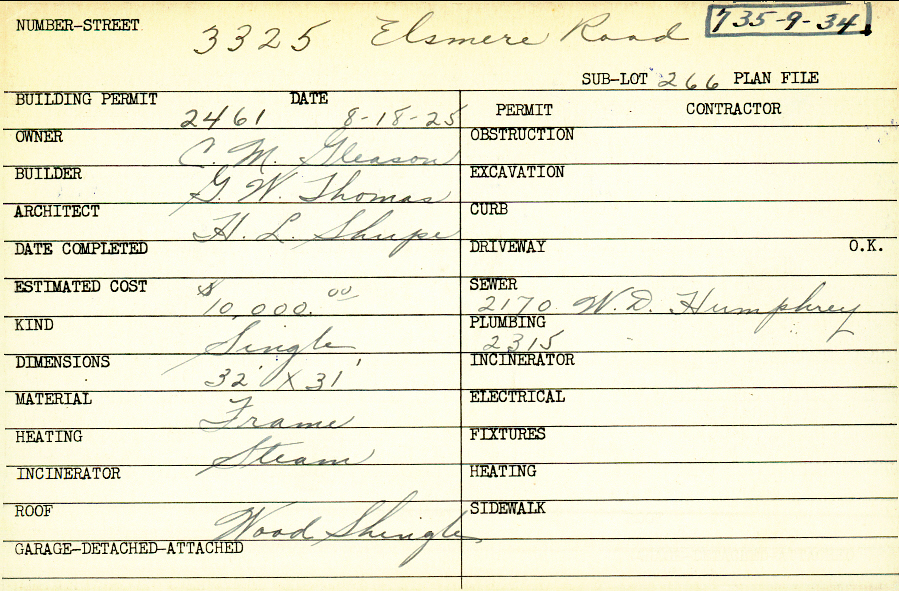 NUMBER-STREET 3325 Elsmere Road 735-9-34
SUB-LOT 266 PLAN FILE
BUILDING PERMIT 2461 DATE 8-18-25
OWNER C. M. Gleason
BUILDER G. W. Thomas
ARCHITECT H. L. Shupe
DATE COMPLETED
ESTIMATED COST $10,000.00
KIND Single
DIMENSIONS 32' X 31'
MATERIAL Frame
HEATING Steam
INCINERATOR
ROOF Wood Shingle
GARAGE-DETACHED-ATTACHED
PERMIT CONTRACTOR
OBSTRUCTION
EXCAVATION
CURB
DRIVEWAY O.K.
SEWER 2170 W.D. Humphrey
PLUMBING 2315
INCINERATOR
ELECTRICAL
FIXTURES
HEATING
SIDEWALK